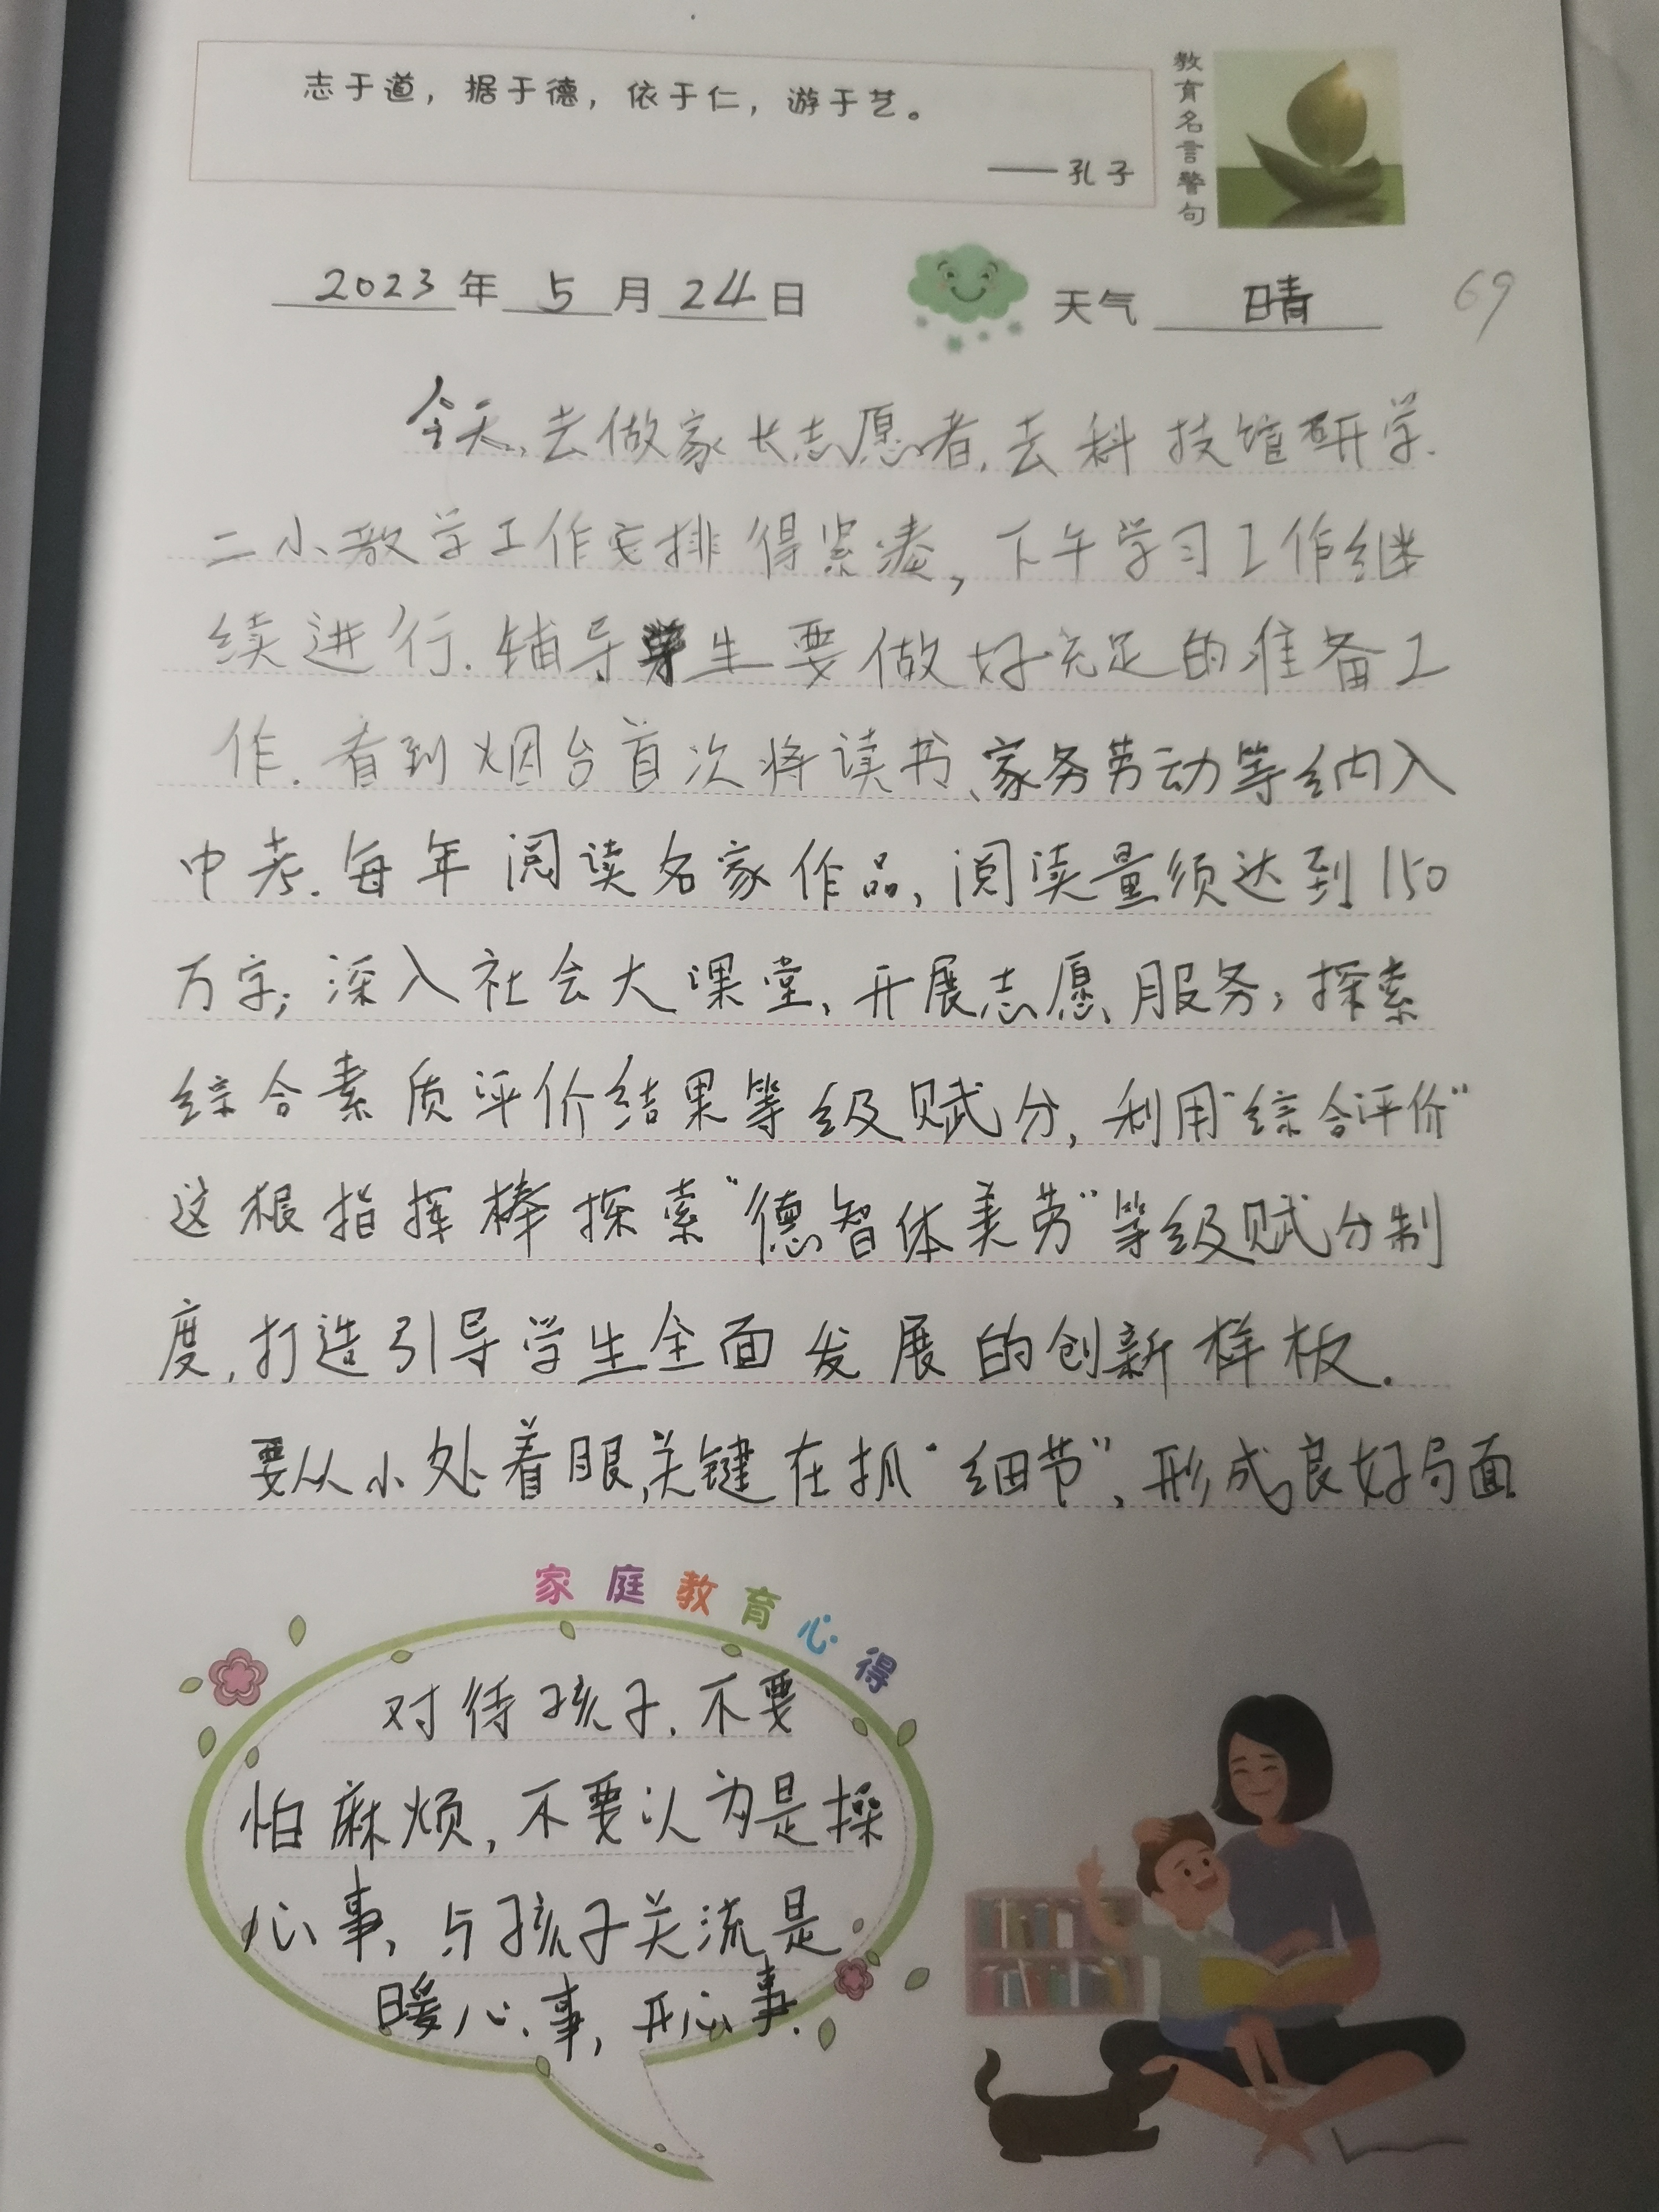 志于道，据于德，依于仁，游于艺。
——孔子
教育名言警句
2023年5月24日
天气 晴
69
今天,去做家长志愿者,去科技馆研学.
二小教学工作安排得紧凑,下午学习工作继
续进行.辅导学生要做好充足的准备工
作.看到烟台首次将读书、家务劳动等纳入
中考.每年阅读名家作品,阅读量须达到150
万字;深入社会大课堂,开展志愿服务;探索
综合素质评价结果等级赋分,利用“综合评价”
这根指挥棒探索“德智体美劳”等级赋分制
度,打造引导学生全面发展的创新样板.
要从小处着眼,关键在抓“细节”,形成良好局面
家庭教育心得
对待孩子,不要
怕麻烦,不要认为是操
心事,与孩子关流是
暖心事,开心事.